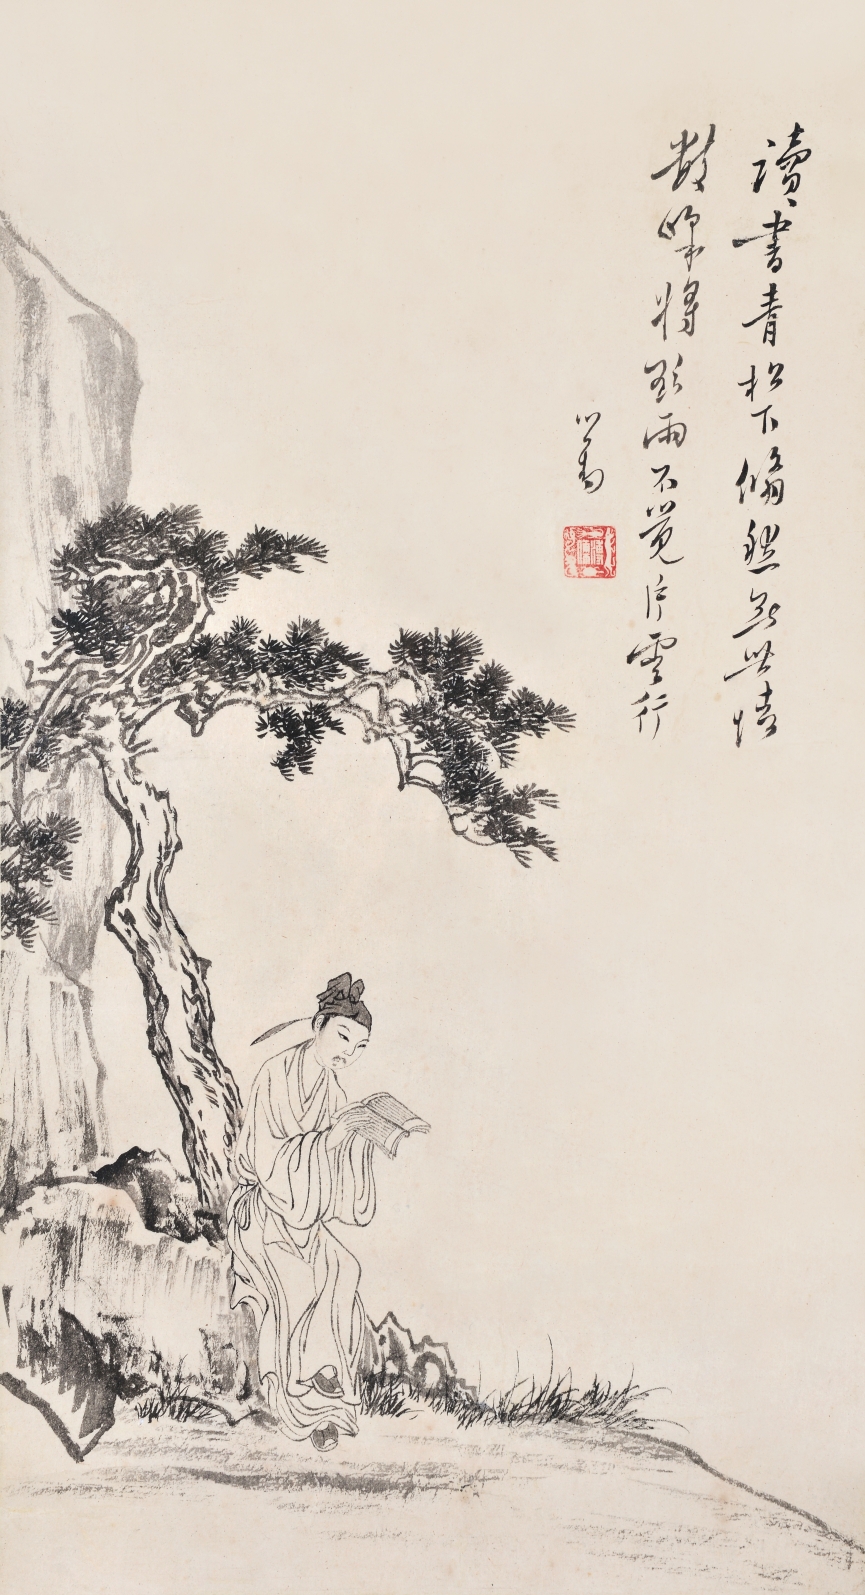 讀書青松下翛然無世情
數峰將欲雨不覺片雲行
心畬